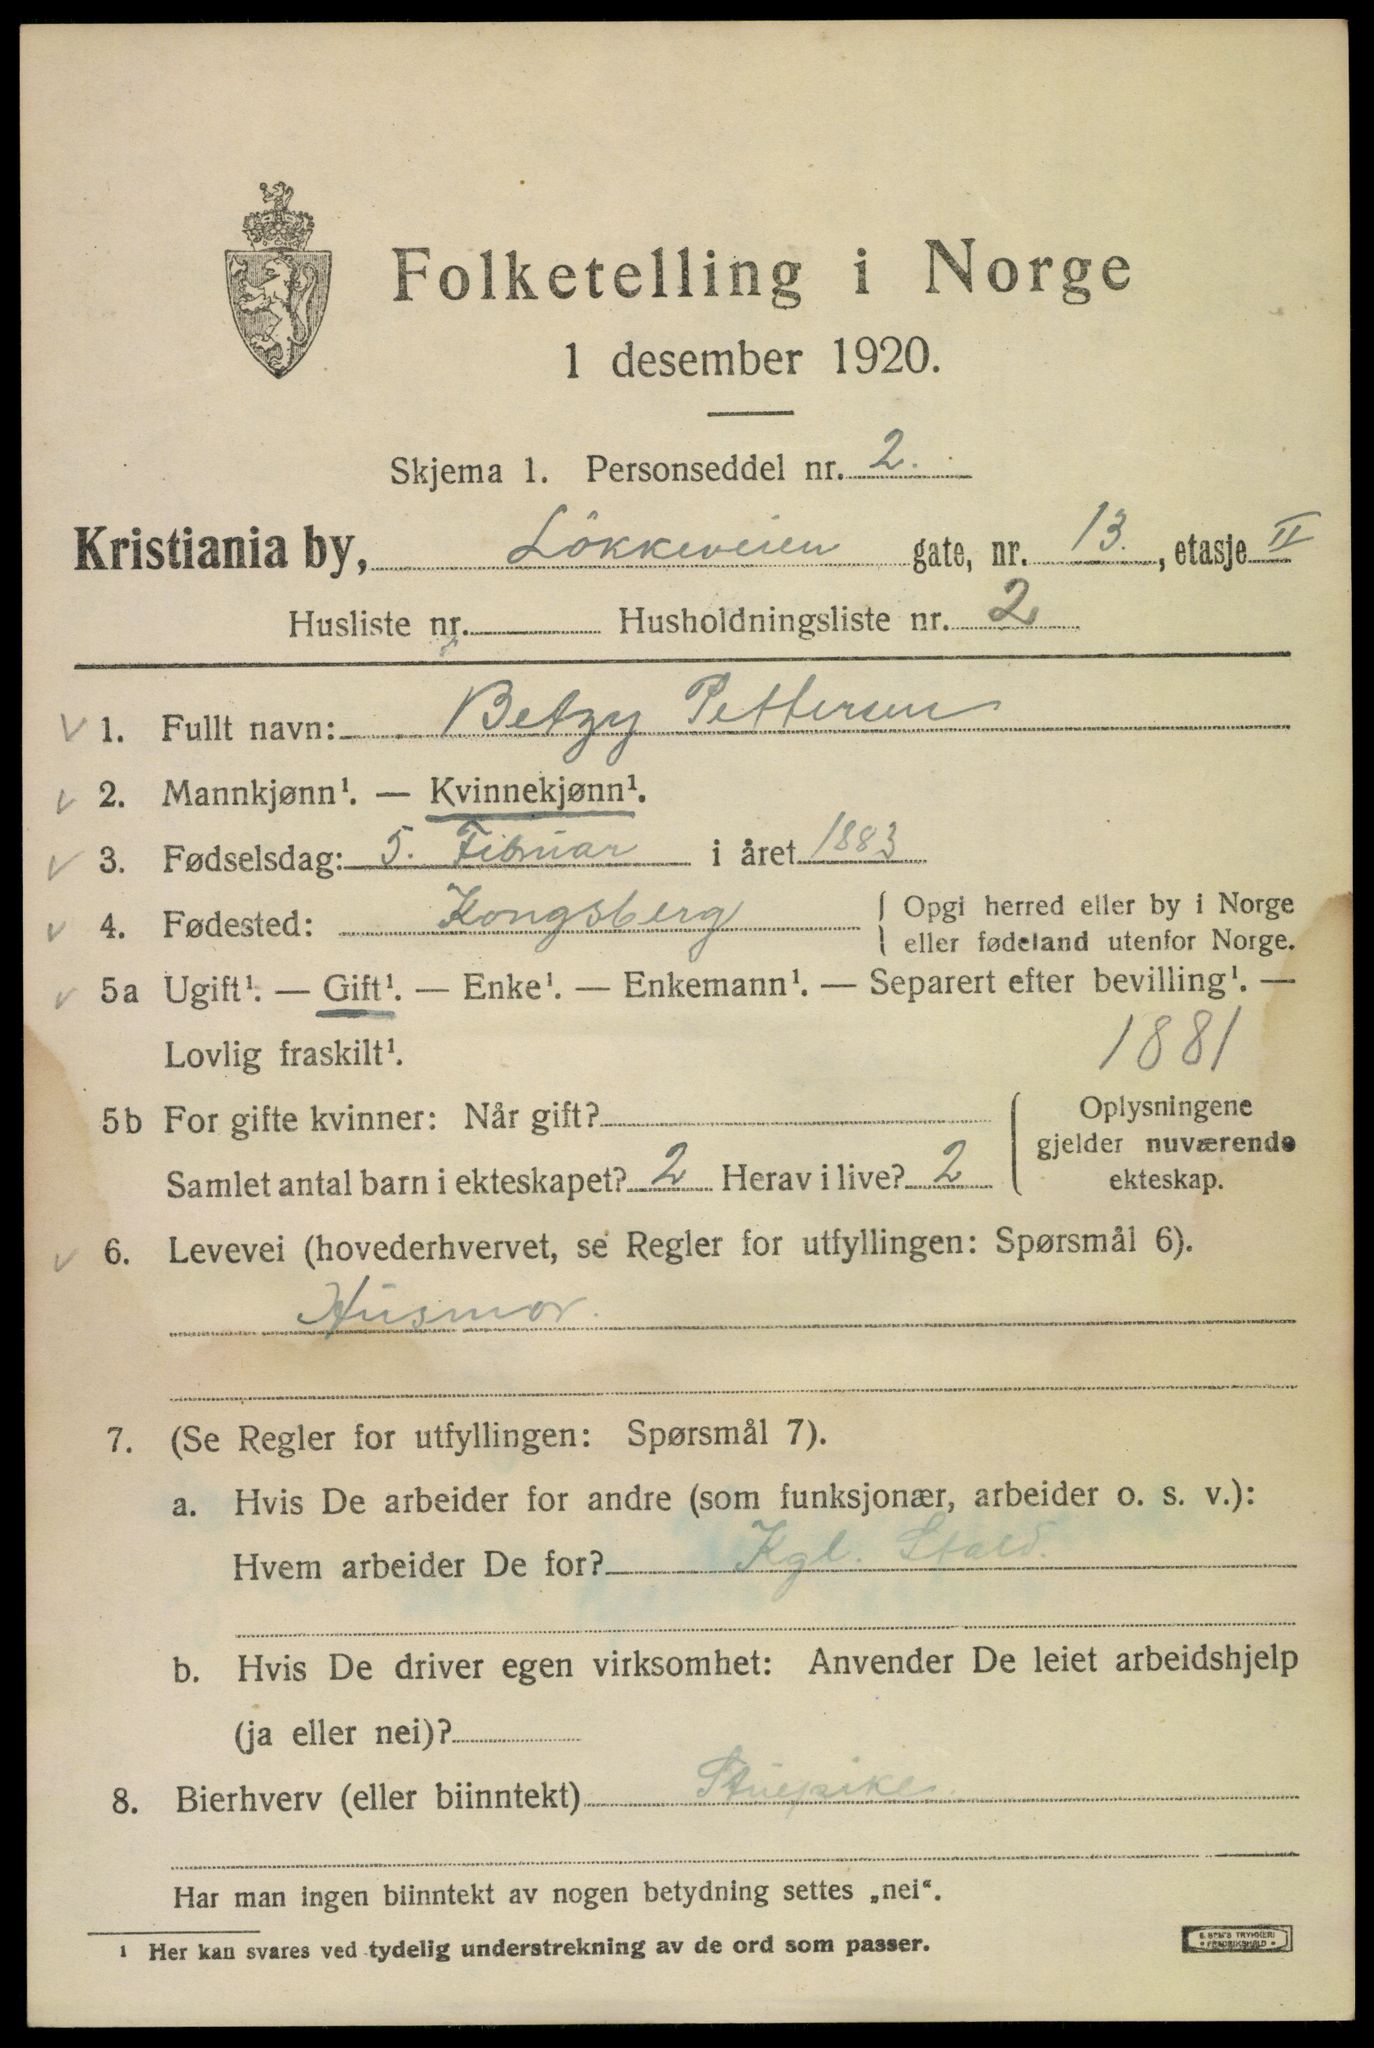 Folketelling i Norge
1 desember 1920.
Skjema 1. Personseddel nr. 2.
Kristiania by, Lökkeveien gate, nr. 13., etasje II
Husliste nr. Husholdningsliste nr. 2
1. Fullt navn: Betzy Pettersen
2. Mannkjønn¹. — Kvinnekjønn¹.
3. Fødselsdag: 5. Februar i året 1883
4. Fødested: Kongsberg { Opgi herred eller by i Norge
eller fødeland utenfor Norge.
5a Ugift¹. — Gift¹. — Enke¹. — Enkemann¹. — Separert efter bevilling¹. —
Lovlig fraskilt¹. 1881
5b For gifte kvinner: Når gift? { Oplysningene
gjelder nuværende
Samlet antal barn i ekteskapet? 2 Herav i live? 2 ekteskap.
6. Levevei (hovederhvervet, se Regler for utfyllingen: Spørsmål 6).
Husmor.
7. (Se Regler for utfyllingen: Spørsmål 7).
a. Hvis De arbeider for andre (som funksjonær, arbeider o. s. v.):
Hvem arbeider De for? Kgl. Stald.
b. Hvis De driver egen virksomhet: Anvender De leiet arbeidshjelp
(ja eller nei)?
8. Bierhverv (eller biinntekt) Stuepike.
Har man ingen biinntekt av nogen betydning settes „nei“.
¹ Her kan svares ved tydelig understrekning av de ord som passer.
E. SEM'S TRYKKERI
• FREDRIKSHALD •